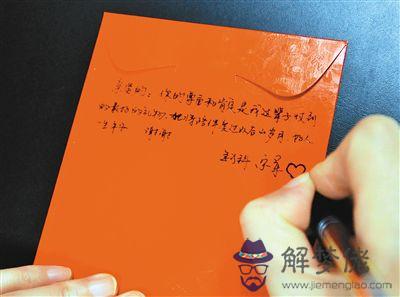 亲爱的：你的尊重和肯定是我这辈子收到
的最好的礼物，他将陪伴度过以后的岁月，好人
一生平 谢谢
解梦佬
www.jiemenglao.com